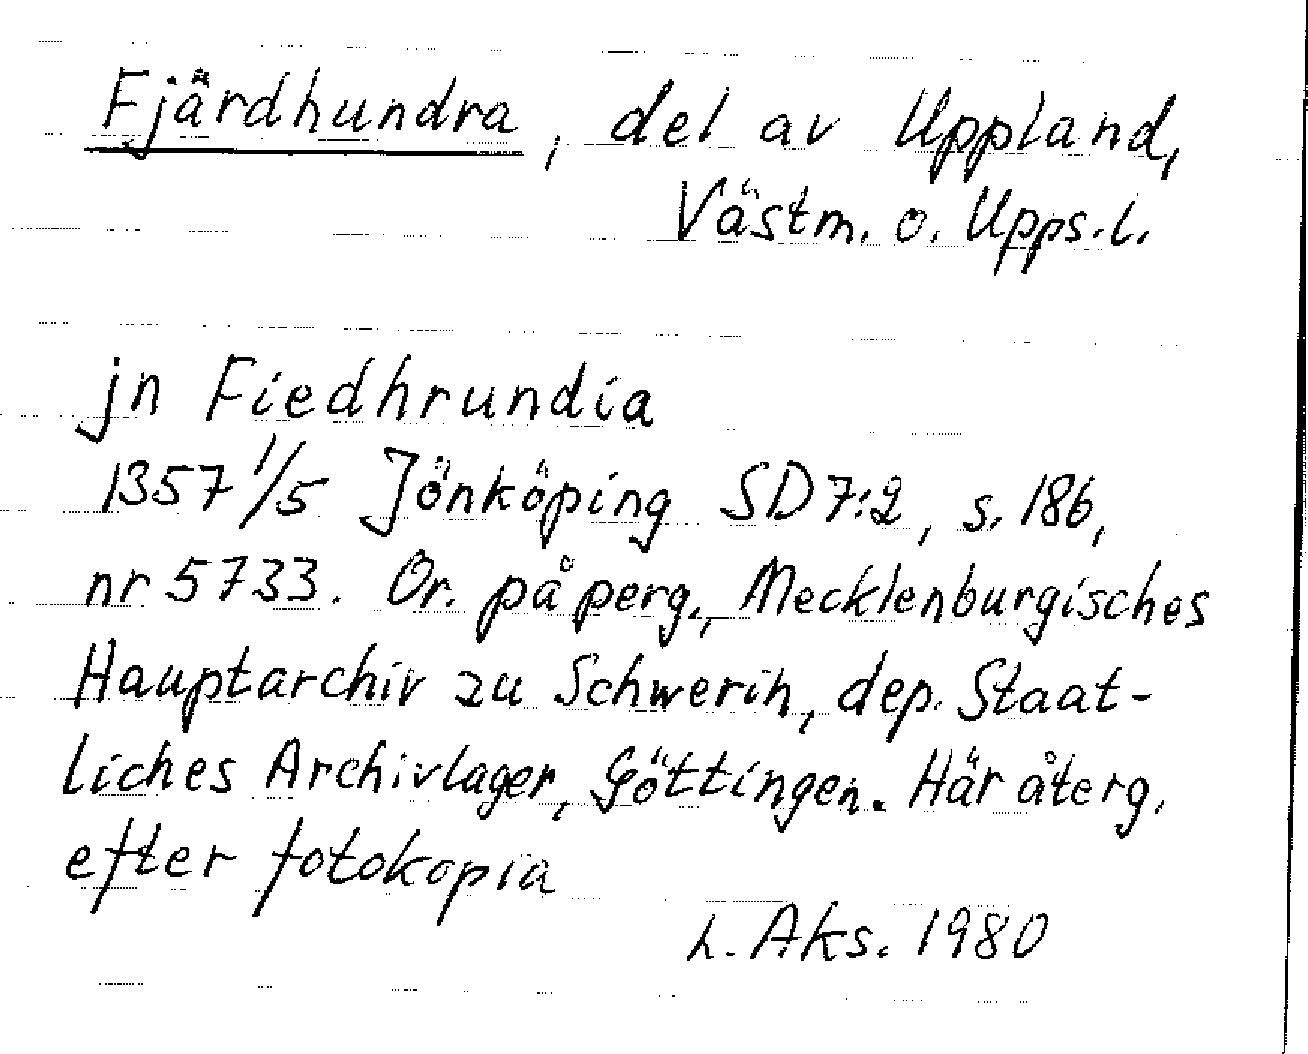 Fjärdhundra, del av Uppland,
Västm. o. Upps. l.
jn Fiedhrundia
1357 1/5 Jönköping SD 7:2, s. 186,
nr 5733. Or. på perg., Mecklenburgisches
Hauptarchiv zu Schwerin, dep. Staat-
liches Archivlager, Göttingen. Här återg.
efter fotokopia
L. Aks. 1980